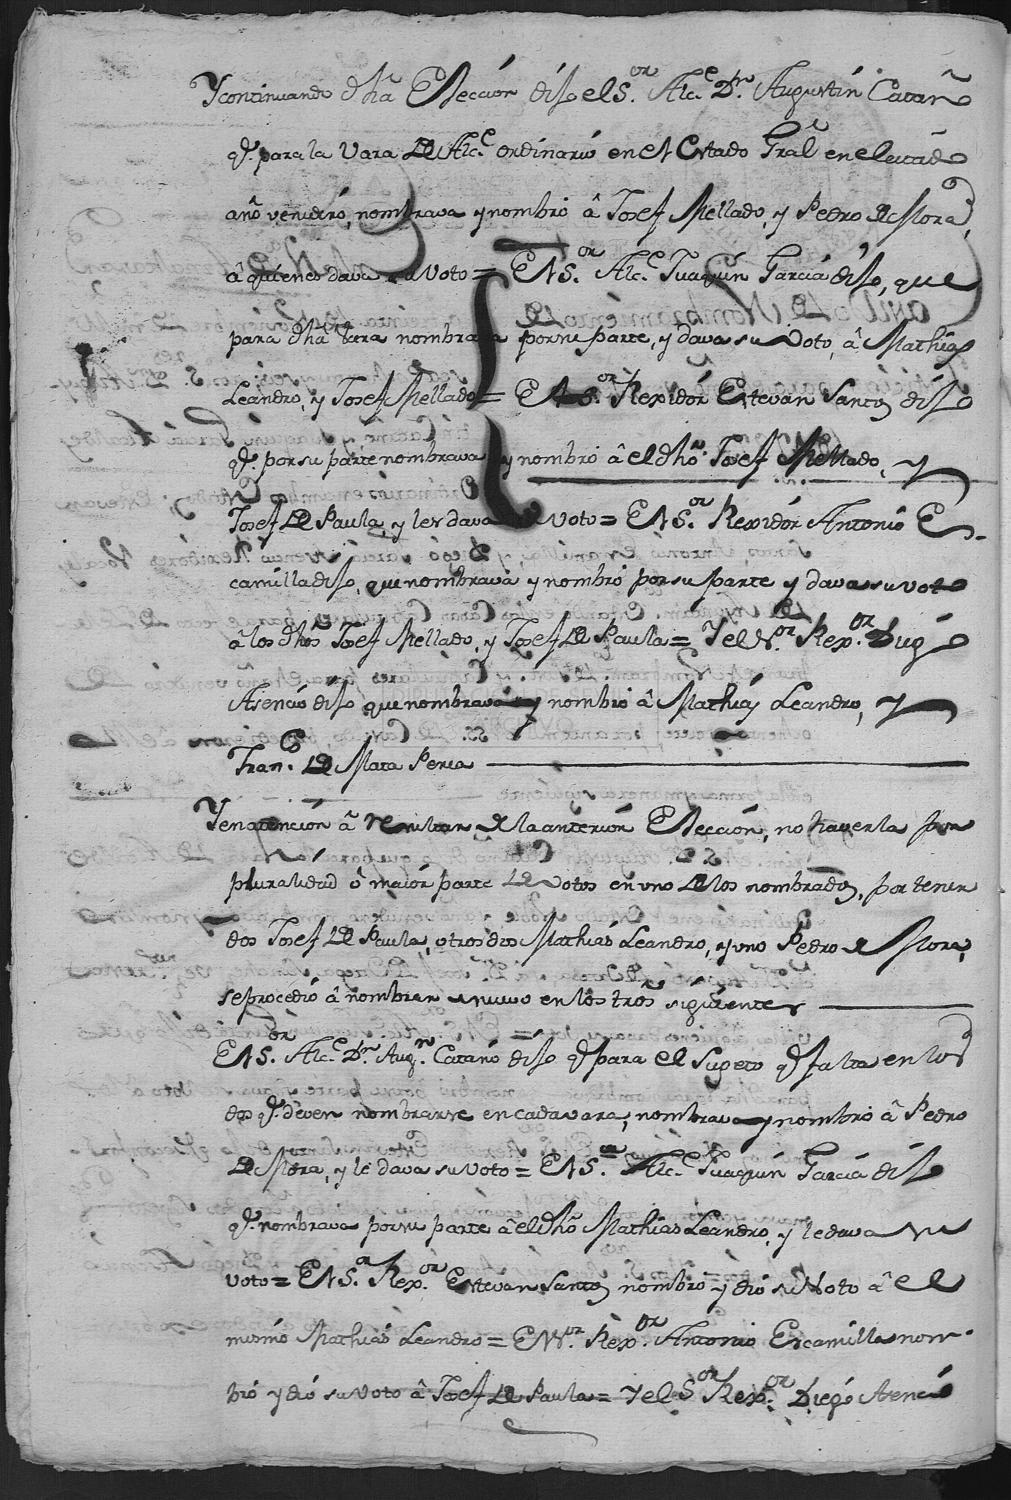 Y continuando dha Elección dijo el S.or Alc.e D.n Augustín Cataño
q.e para la Vara de Alc.e ordinario en el Estado Gral en el entrãte
año venidero, nombrava y nombro â Josef Mellado, y Pedro de Mora,
â quienes dava su Voto = El S.or Alc.e Juaquin Garcia dijo, que
para dha Vara nombrava por su parte, y dava su Voto, â Mathias
Leandro, y Josef Mellado = El S.or Rexidor Estevan Santos dijo
q.e por su parte nombrava y nombró â el dho Josef Mellado, y
Josef de Paula, y les dava su voto = El S.or Rexidór Antonio Es-
camilla dijo, que nombrava y nombró por su parte y dava su voto
â los dhos Josef Mellado, y Josef de Paula = Y el S.or Rex.or Diego
Asencio dijo que nombrava y nombró â Mathias Leandro, y
Fran.co de Mata Perea
Y en atención â resultar de la anterior Elección, no haverla por
pluralidad ô maior parte de Votos en uno de los nombrados, por tener
dos Josef de Paula, otros dos Mathias Leandro, y uno Pedro de Mora,
se procedió â nombrar de nuevo en los tros siguientes
El S.or Alc.e D.n Aug.n Cataño dijo q.e para el Sugeto q.e falta en los
dos q.e deven nombrarse en cada vara, nombrava y nombró â Pedro
de Mora, y le dava su Voto = El S.or Alc.e Juaquin Garcia dijo
q.e nombrava por su parte â el dho Mathias Leandro, y le dava su
voto = El S.or Rex.or Estevan Santos nombró y dió su Voto â el
mismo Mathias Leandro = El S.or Rex.or Antonio Escamilla nom-
bró y dió su Voto â Josef de Paula = Y el S.or Rex.or Diego Asencio